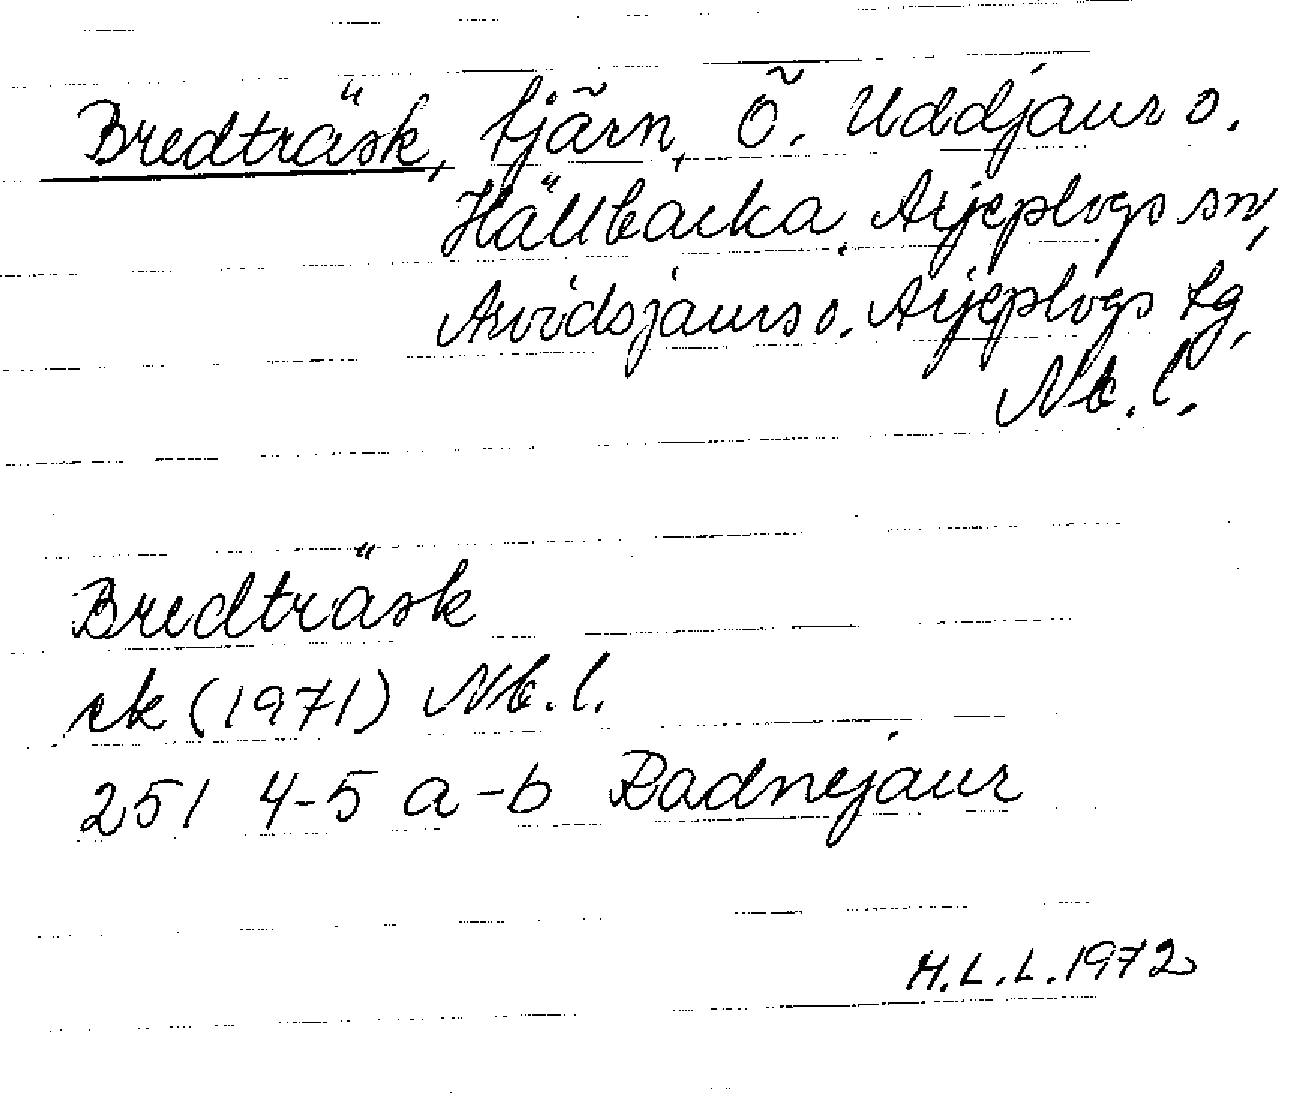 Bredträsk, tjärn, Ö. Uddjaur o.
Hällbacka, Arjeplogs sn,
Arvidsjaurs o. Arjeplogs tg,
Nb. l.
Bredträsk
ek (1971) Nb. l.
251 4-5 a-b Radnejaur
H.L.L. 1972